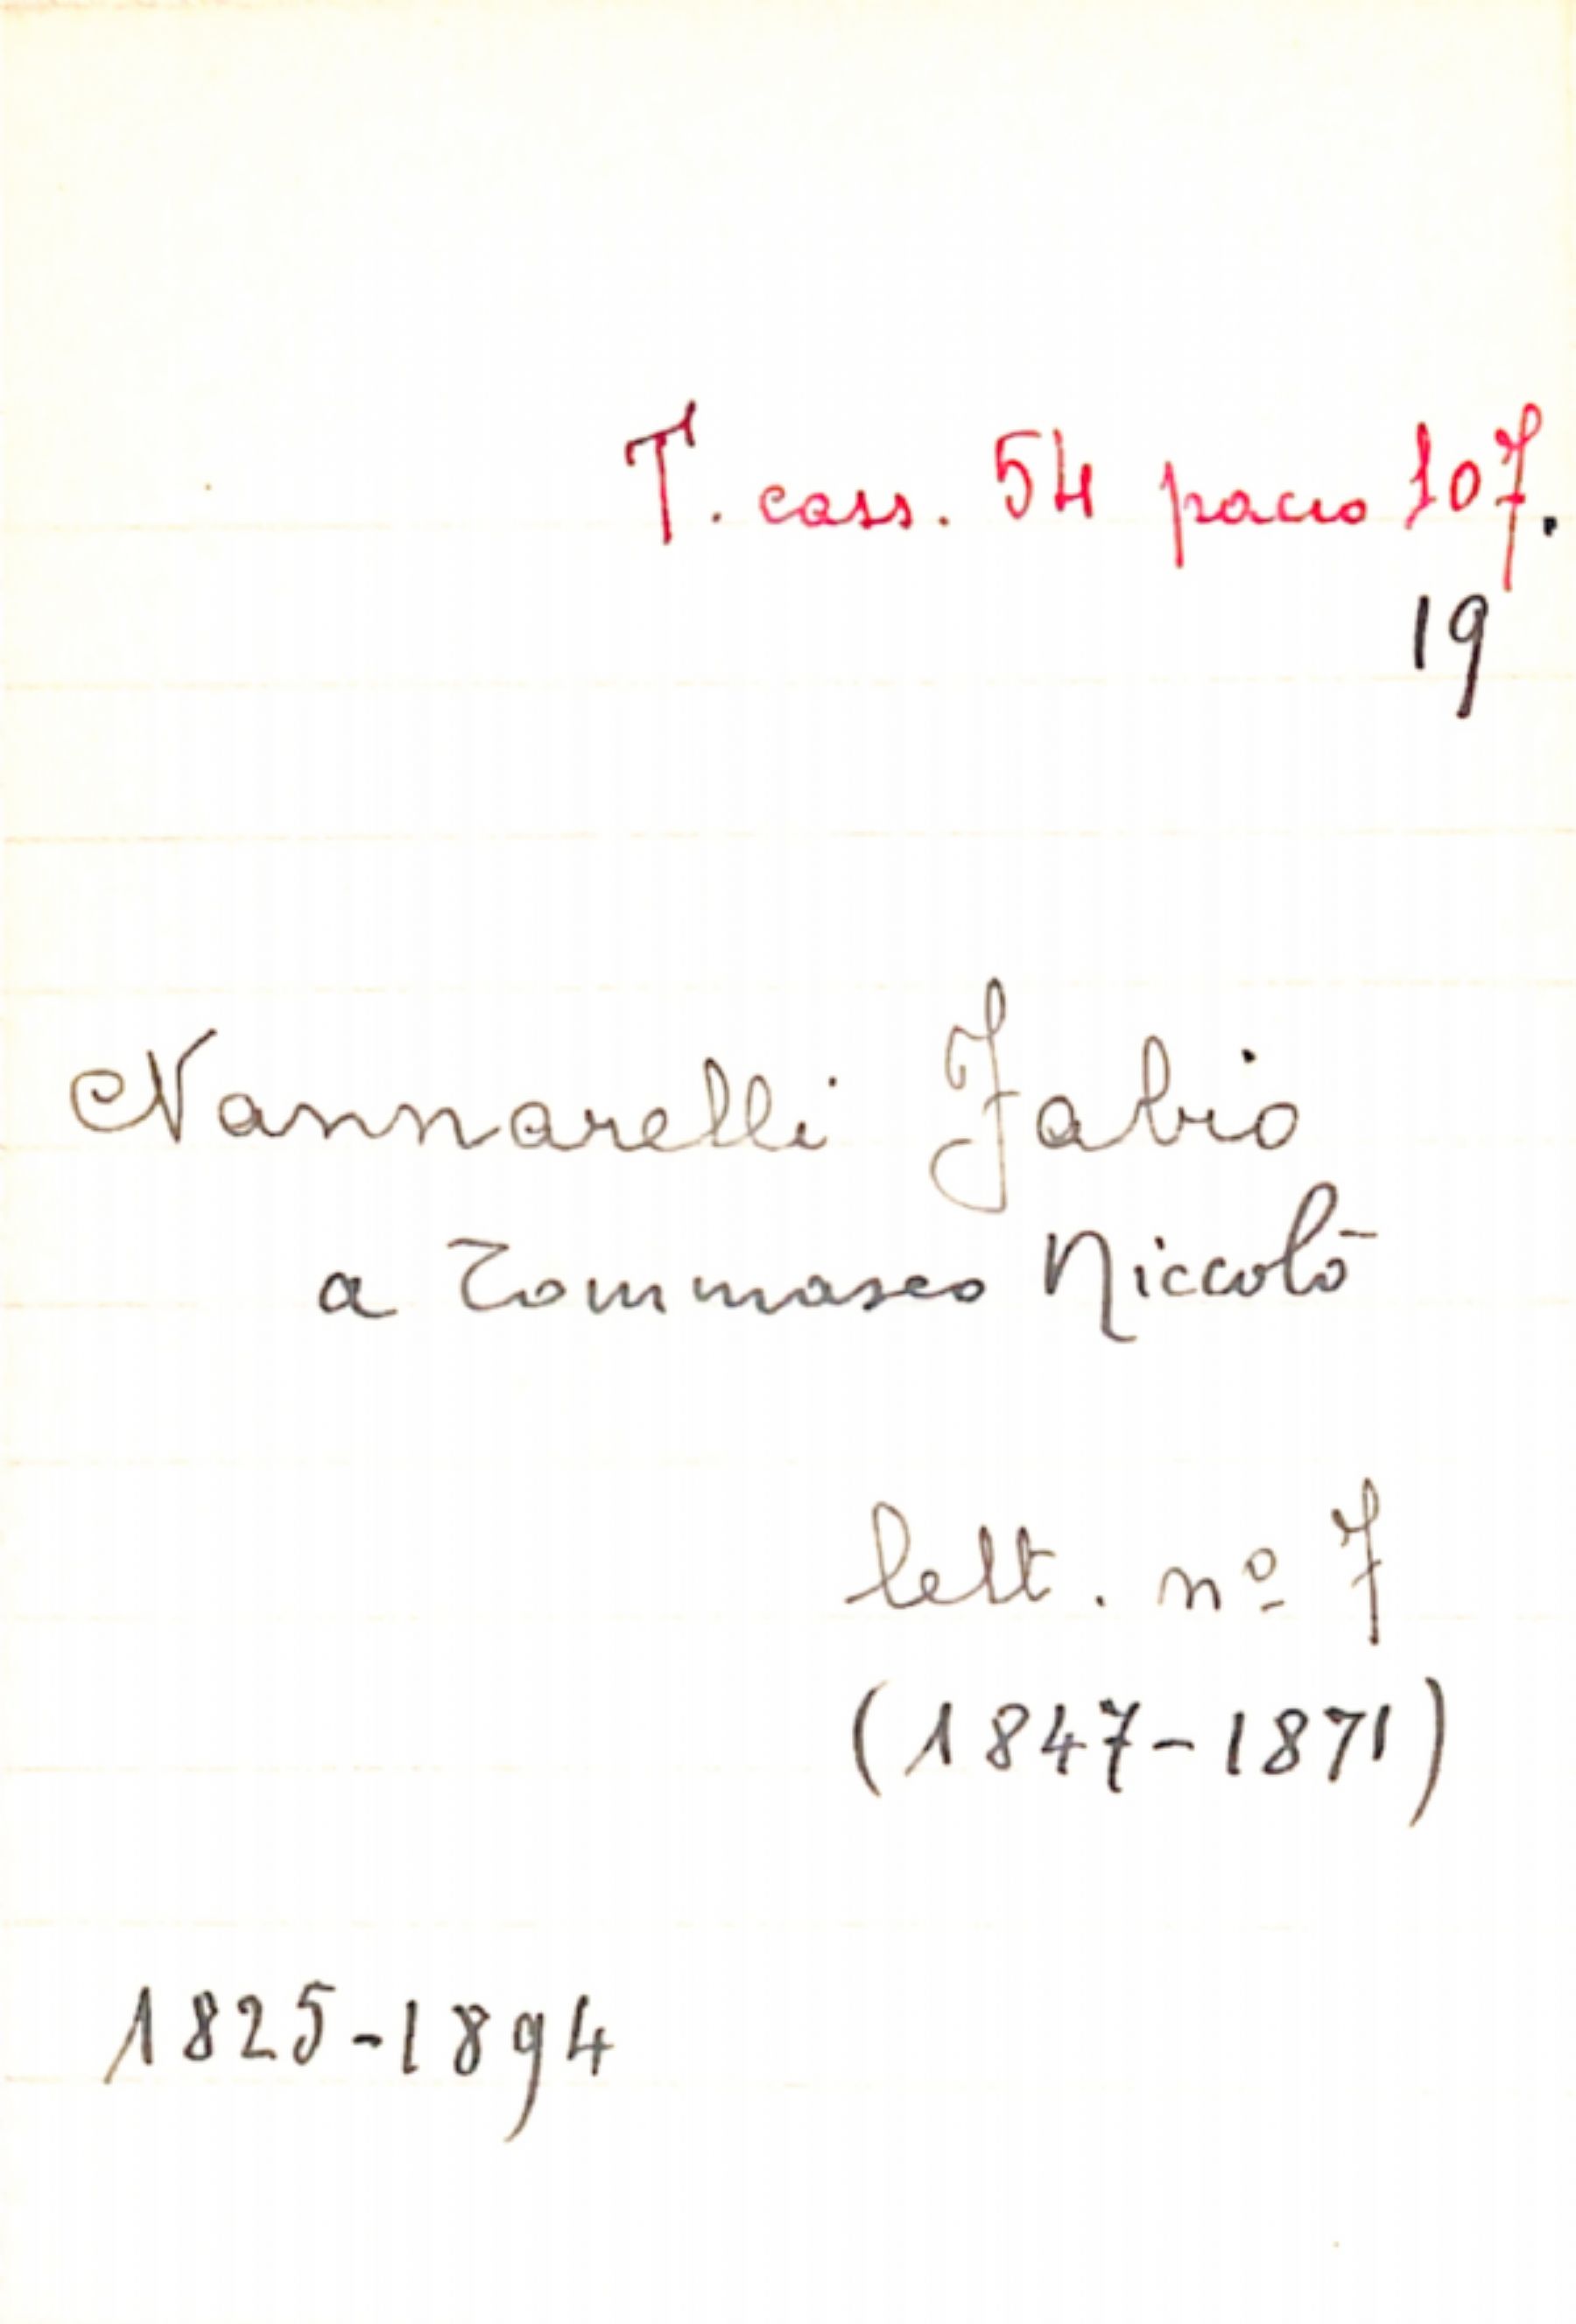 T. cass. 54 pacco 107.
19
Nannarelli Fabio
a Tommaseo Niccolò
lett. nº 7
(1847-1871)
1825-1894